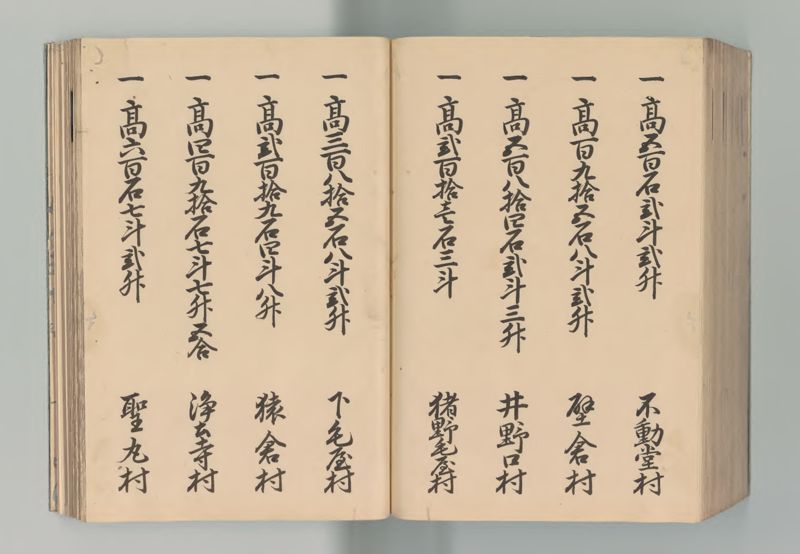 一 髙五百石弐斗弐升 不動堂村
一 髙百九拾五石八斗弐升 壁倉村
一 髙五百八拾四石弐斗三升 井野口村
一 髙弐百拾壱石三斗 猪野毛屋村
一 髙三百八拾五石八斗弐升 下毛屋村
一 髙弐百拾九石四斗八升 猿倉村
一 髙四百九拾石七斗七升五合 浄土寺村
一 髙六百石七斗弐升 聖丸村